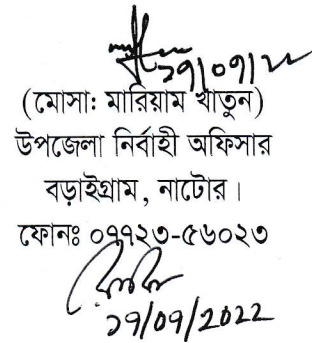 ১৭/০৭/২২
(মোসা: মারিয়াম খাতুন)
উপজেলা নির্বাহী অফিসার
বড়াইগ্রাম, নাটোর।
ফোনঃ ০৭৭২৩-৫৬০২৩
১৭/০৭/2022